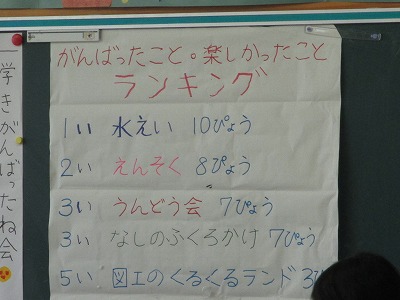 がんばったこと。楽しかったこと
ランキング
1い 水えい 10ぴょう
2い えんそく 8ぴょう
3い うんどう会 7ぴょう
3い なしのふくろかけ 7ぴょう
5い 図工のくるくるランド 3ぴ
学きがんばったね会